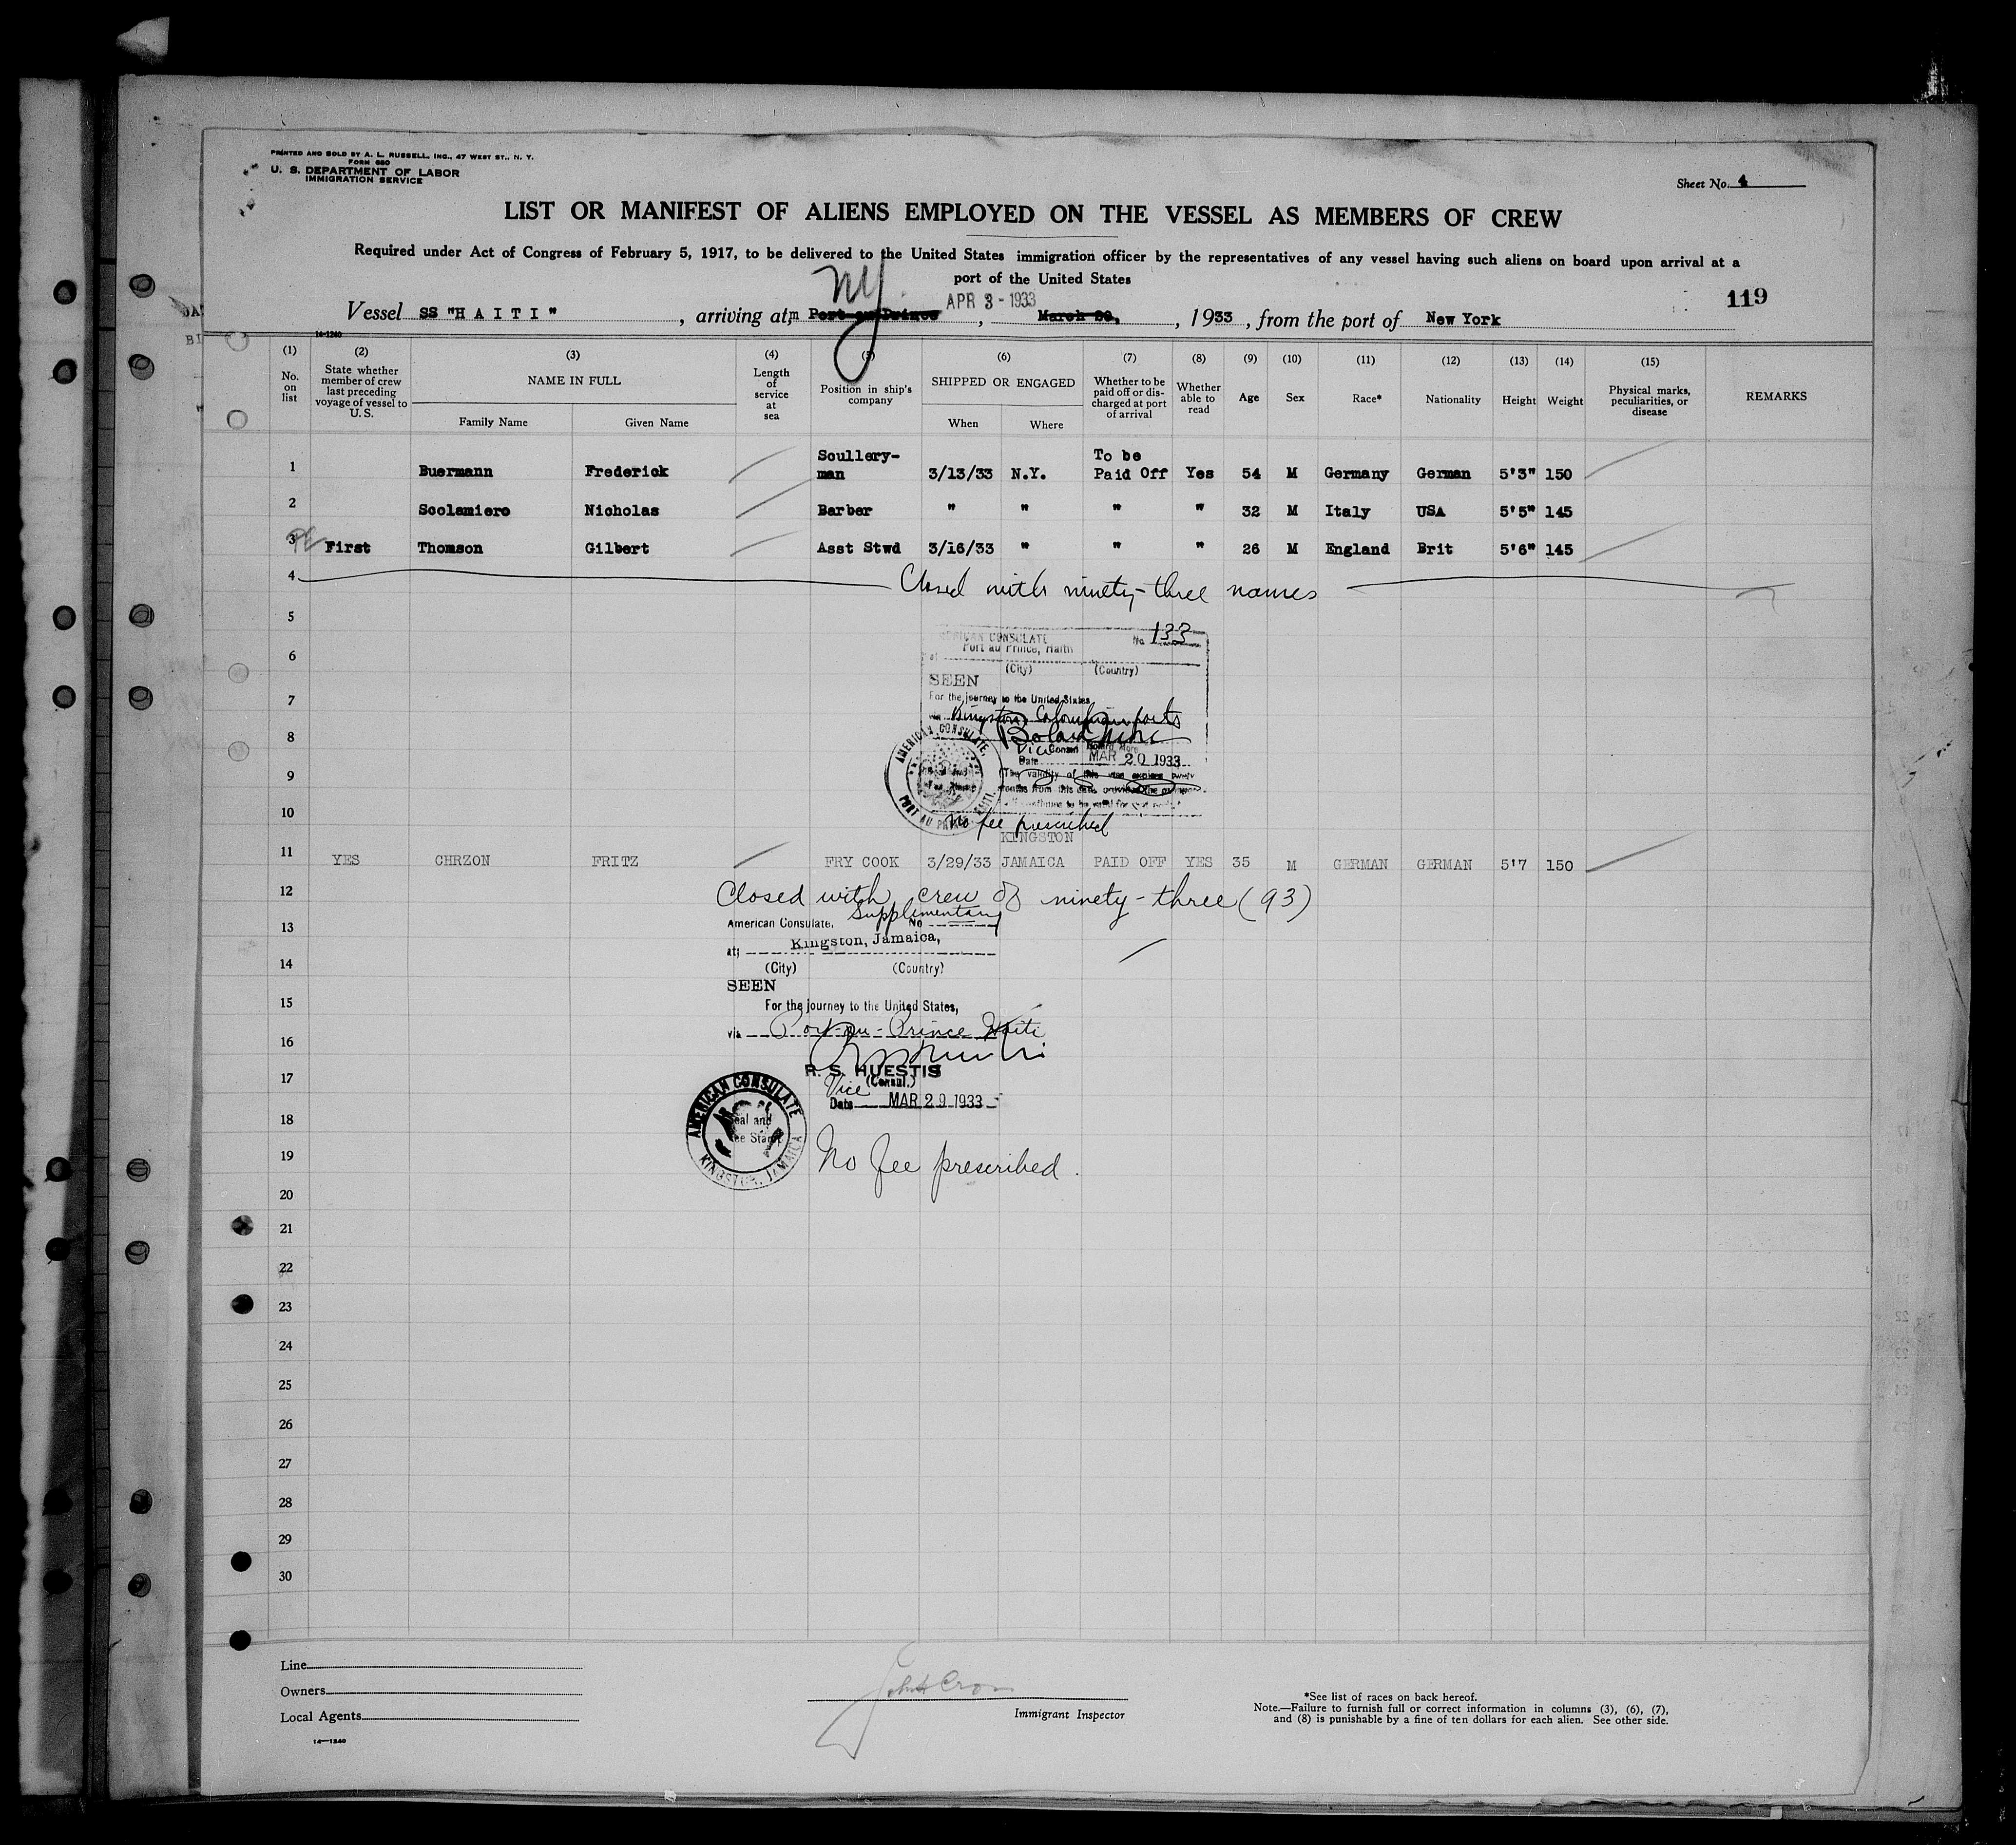 PRINTED AND SOLD BY A. L. RUSSELL, INC., 47 WEST ST., N. Y.
FORM 680
U. S. DEPARTMENT OF LABOR
IMMIGRATION SERVICE
Sheet No. 4
LIST OR MANIFEST OF ALIENS EMPLOYED ON THE VESSEL AS MEMBERS OF CREW
Required under Act of Congress of February 5, 1917, to be delivered to the United States immigration officer by the representatives of any vessel having such aliens on board upon arrival at a
port of the United States
NY
APR 3 - 1933
119
Vessel SS "H A I T I", arriving at Port au Prince, March 20, 1933, from the port of New York
14-1240
(1) (2) (3) (4) (5) (6) (7) (8) (9) (10) (11) (12) (13) (14) (15)
No. on list State whether member of crew last preceding voyage of vessel to U. S. NAME IN FULL Length of service at sea Position in ship's company SHIPPED OR ENGAGED Whether to be paid off or discharged at port of arrival Whether able to read Age Sex Race* Nationality Height Weight Physical marks, peculiarities, or disease REMARKS
Family Name Given Name When Where
1 Buermann Frederick Scullery-man 3/13/33 N.Y. To be Paid Off Yes 54 M Germany German 5'3" 150
2 Scolamiero Nicholas Barber " " " " 32 M Italy USA 5'5" 145
3 First Thomson Gilbert Asst Stwd 3/16/33 " " " 26 M England Brit 5'6" 145
4 Closed with ninety-three names
5
AMERICAN CONSULATE No 133
6 Port au Prince, Haiti
(City) (Country)
SEEN
7 For the journey to the United States
via Kingston Colombian ports
8
Vice Consul
Date MAR 20 1933
AMERICAN CONSULATE, PORT AU PRINCE, HAITI
9 (The validity of this visa expires twelve
months from this date provided the
continues to be valid for
10 No fee prescribed
KINGSTON
11 YES CHRZON FRITZ FRY COOK 3/29/33 JAMAICA PAID OFF YES 35 M GERMAN GERMAN 5'7 150
12 Closed with crew of ninety-three (93)
Supplimentary
13 American Consulate, No
at Kingston, Jamaica,
14 (City) (Country)
SEEN
15 For the journey to the United States,
via Port-au-Prince Haiti
16
R. S. HUESTIS
17 Vice (Consul.)
Date MAR 29 1933
AMERICAN CONSULATE KINGSTON, JAMAICA
Seal and
Fee Stamp
18
19 No fee prescribed.
20
21
22
23
24
25
26
27
28
29
30
Line
Owners
Local Agents
14-1240
Immigrant Inspector
*See list of races on back hereof.
Note.—Failure to furnish full or correct information in columns (3), (6), (7),
and (8) is punishable by a fine of ten dollars for each alien. See other side.